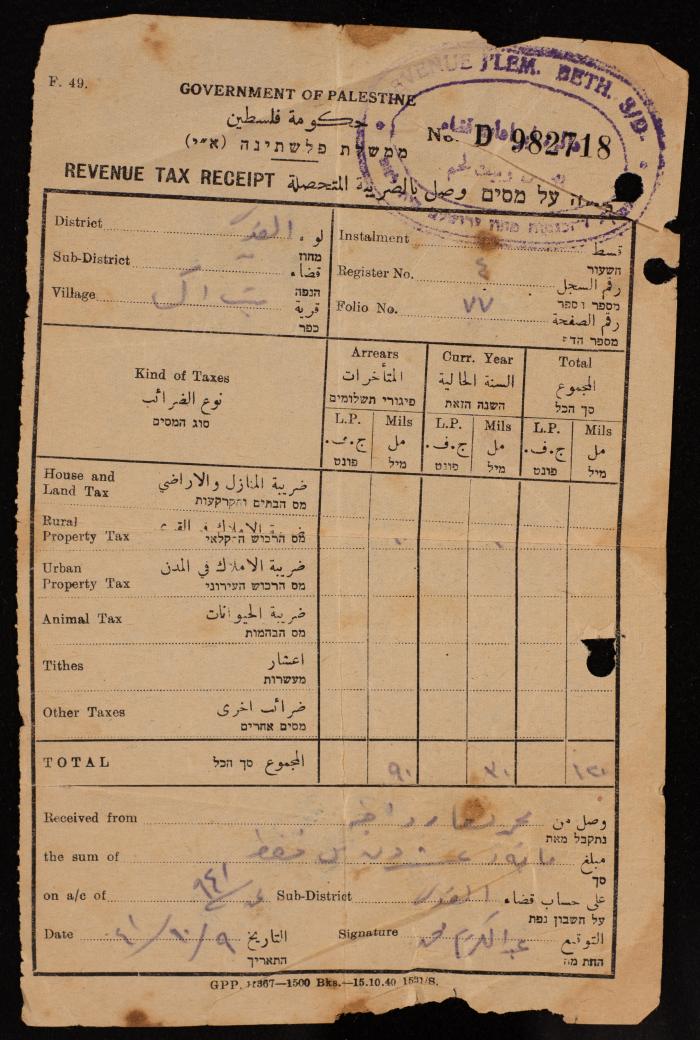 F. 49.
GOVERNMENT OF PALESTINE
حكومة فلسطين
ממשלת פלשתינה (א״י)
REVENUE J'LEM. BETH. S/D.
No. D 982718
REVENUE TAX RECEIPT وصل بالضريبة المتحصلة על מסים
District القدس لواء
מחוז
Sub-District قضاء
הנפה
Village بيت قرية
כפר
Instalment قسط
השעור
Register No. ٤ رقم السجل
מספר הספר
Folio No. ٧٧ رقم الصفحة
מספר הדף
Kind of Taxes
نوع الضرائب
סוג המסים
Arrears
المتأخرات
פיגורי תשלומים
Curr. Year
السنة الحالية
השנה הזאת
Total
المجموع
סך הכל
L.P. Mils L.P. Mils L.P. Mils
ج.ف. مل ج.ف. مل ج.ف. مل
פונט מיל פונט מיל פונט מיל
House and
Land Tax
ضريبة المنازل والاراضي
מס הבתים והקרקעות
Rural
Property Tax
ضريبة الاملاك في القرى
מס הרכוש החקלאי
Urban
Property Tax
ضريبة الاملاك في المدن
מס הרכוש העירוני
Animal Tax
ضريبة الحيوانات
מס הבהמות
Tithes
اعشار
מעשרות
Other Taxes
ضرائب اخرى
מסים אחרים
TOTAL المجموع סך הכל ٩٠ ٣٠ ١٢٠
Received from محمد وصل من
נתקבל מאת
the sum of مائة وعشرون مل فقط مبلغ
סך
on a/c of ٩٤١ Sub-District القدس على حساب قضاء
על חשבון נפת
Date ٩/١٠/٤١ التاريخ
התאריך
Signature عبدالكريم التوقيع
GPP. 11367—1500 Bks.—15.10.40 1531/S.